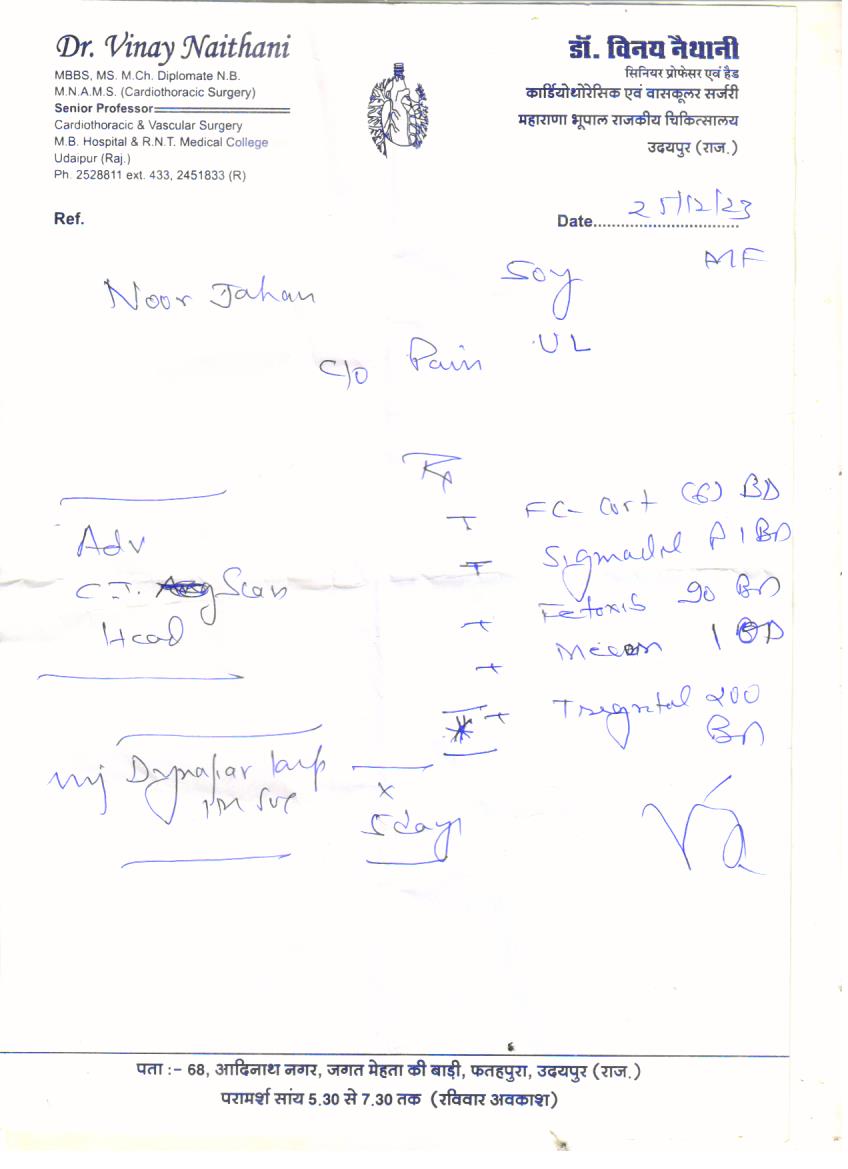 Dr. Vinay Naithani
MBBS, MS. M.Ch. Diplomate N.B.
M.N.A.M.S. (Cardiothoracic Surgery)
Senior Professor
Cardiothoracic & Vascular Surgery
M.B. Hospital & R.N.T. Medical College
Udaipur (Raj.)
Ph. 2528811 ext. 433, 2451833 (R)
डॉ. विनय नैथानी
सिनियर प्रोफेसर एवं हैड
कार्डियोथोरेसिक एवं वासकूलर सर्जरी
महाराणा भूपाल राजकीय चिकित्सालय
उदयपुर (राज.)
Ref.
Date 25/12/23
Noor Jahan
50y
MF
UL
C/O Pain
Rx
Adv
C.T. Scan
Head
T FC-Cort (6) BD
T Sigmadol P 1 BD
T 90 BD
T 1 OD
T Tregretal 200
BD
inj Dynapar
x
5 days
पता :– 68, आदिनाथ नगर, जगत मेहता की बाड़ी, फतहपुरा, उदयपुर (राज.)
परामर्श सांय 5.30 से 7.30 तक (रविवार अवकाश)